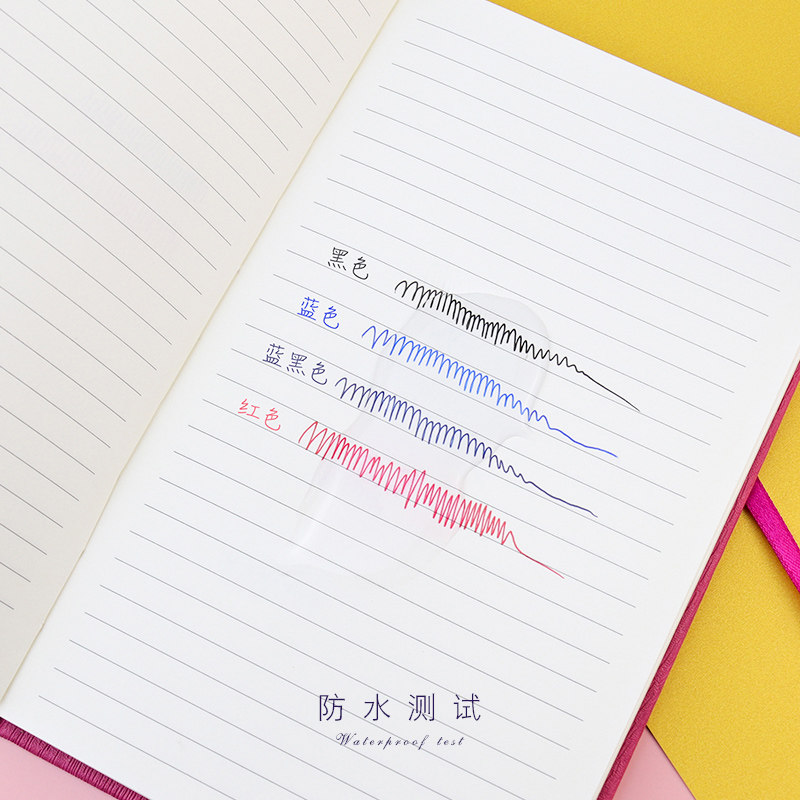 黑色
蓝色
蓝黑色
红色
防水测试
Waterproof test